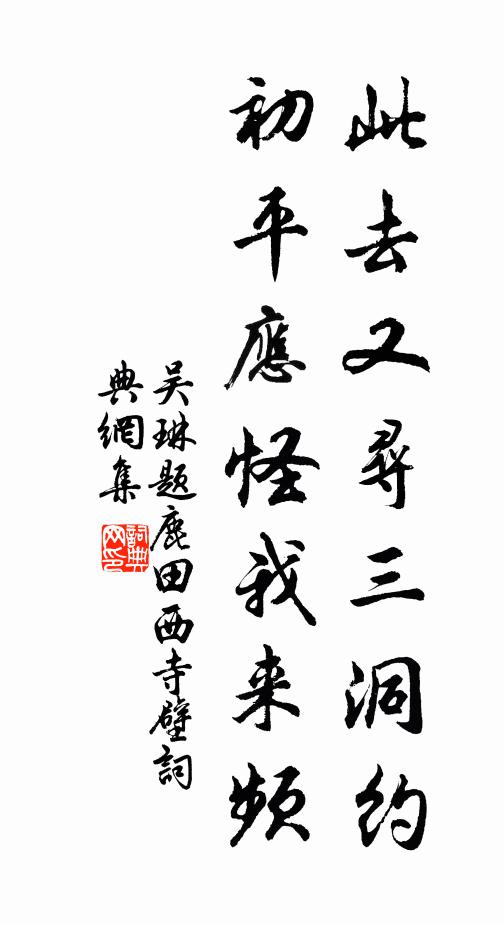 此去又尋三洞約
初平應怪我来頻
吴琳題鹿田西寺壁詞
典網集
詞典網印